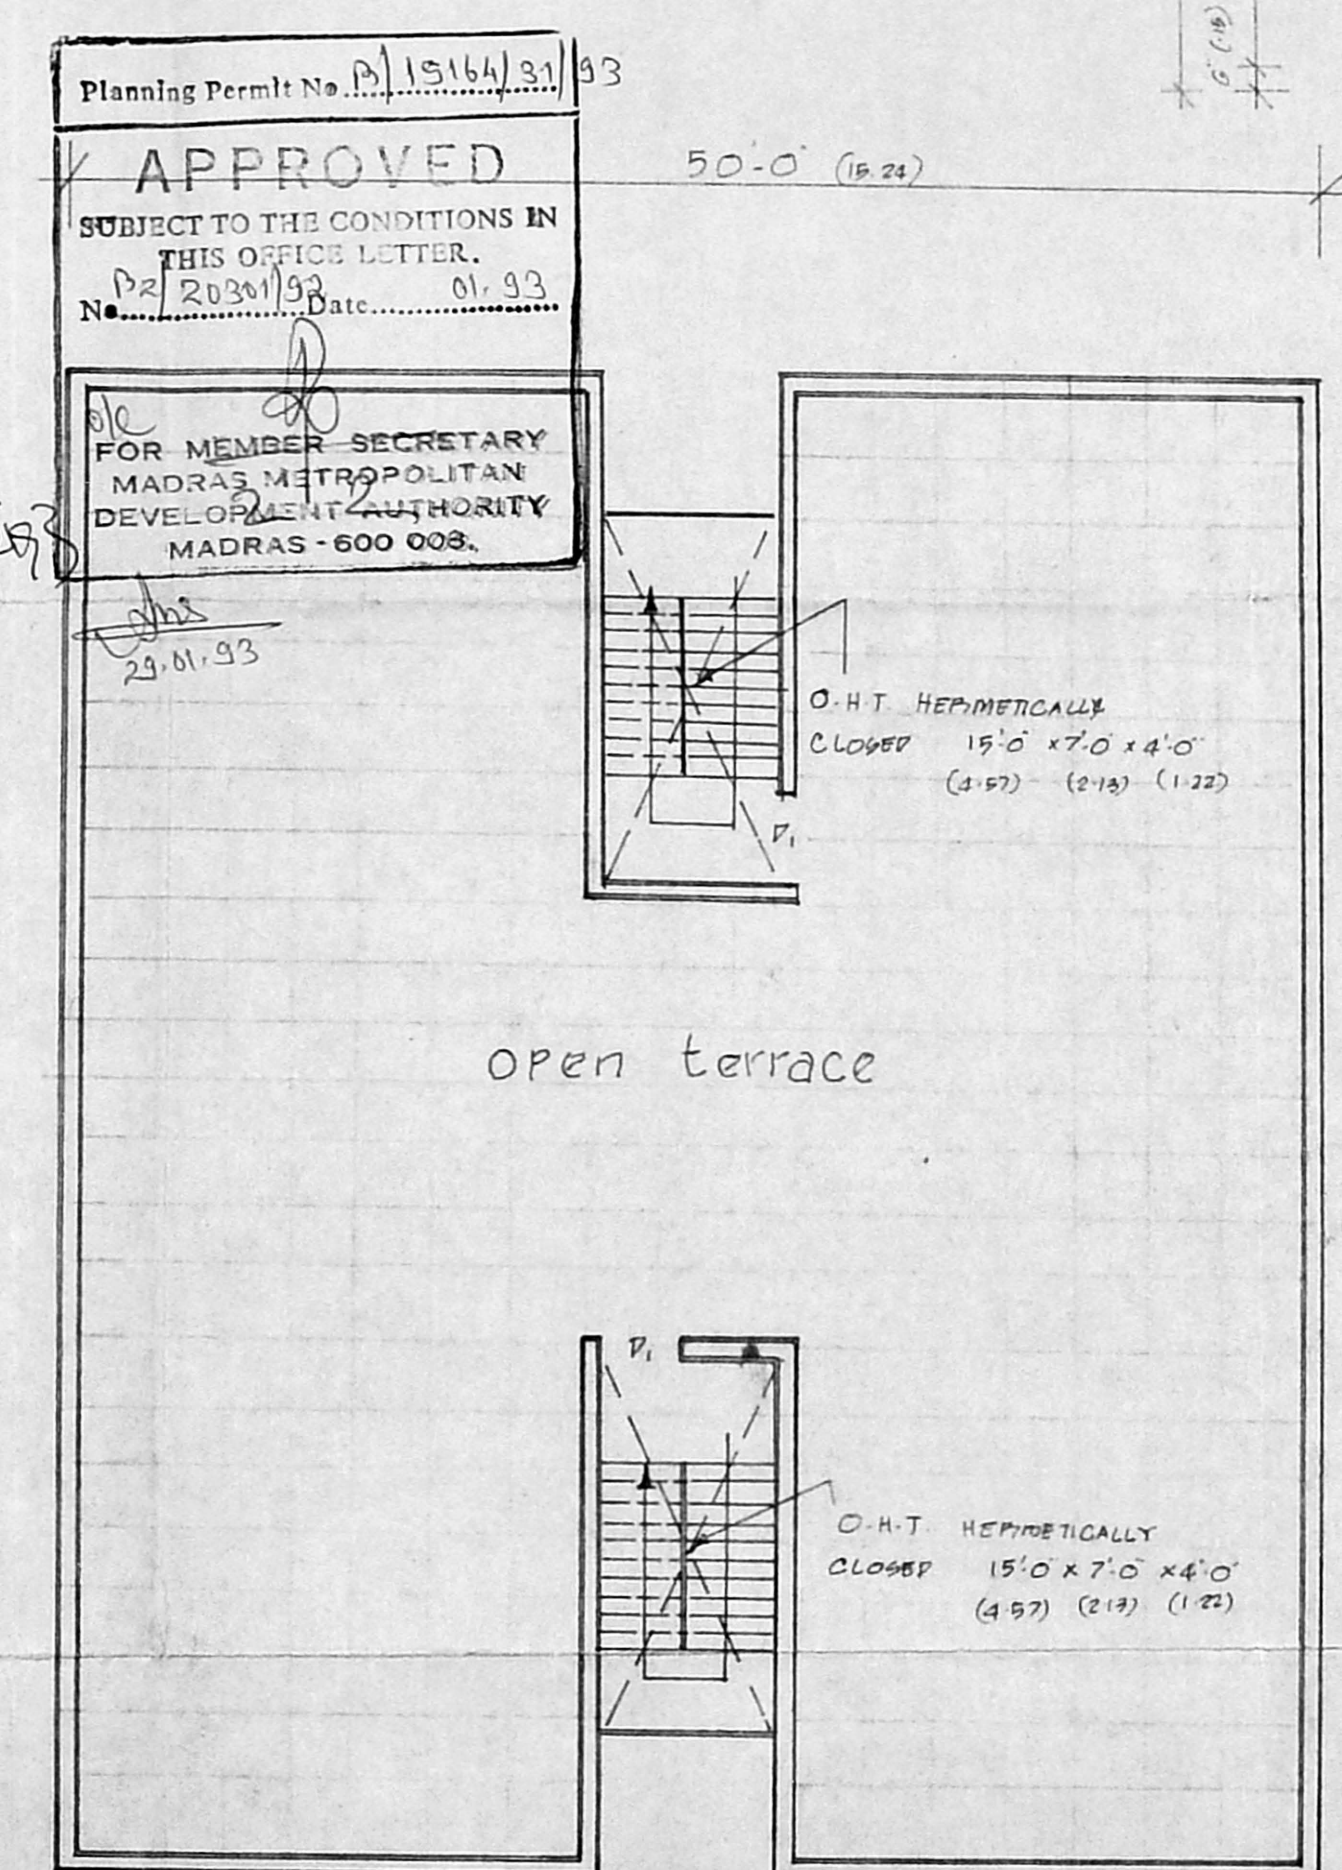 Planning Permit No. B/15164/31/93
APPROVED
SUBJECT TO THE CONDITIONS IN
THIS OFFICE LETTER.
No. B2/20301/92 Date 01.93
50'-0" (15.24)
6" (.15)
o/c
FOR MEMBER SECRETARY
MADRAS METROPOLITAN
DEVELOPMENT AUTHORITY
MADRAS - 600 008.
29.01.93
O.H.T. HERMETICALLY
CLOSED 15'-0" x 7'-0" x 4'-0"
(4.57) (2.13) (1.22)
D1
open terrace
D1
O.H.T. HERMETICALLY
CLOSED 15'-0" x 7'-0" x 4'-0"
(4.57) (2.13) (1.22)